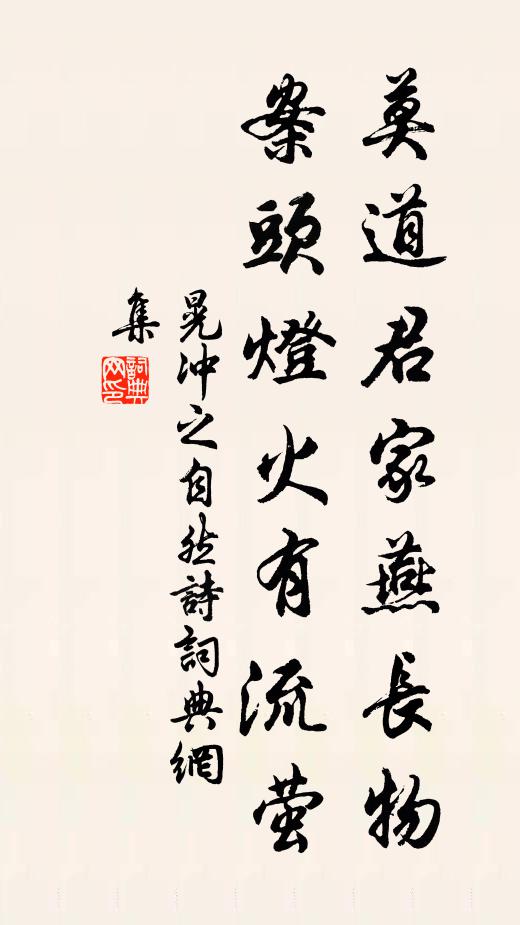 莫道君家燕長物
案頭燈火有流螢
晁沖之自然詩詞典網
集
詞典
网印